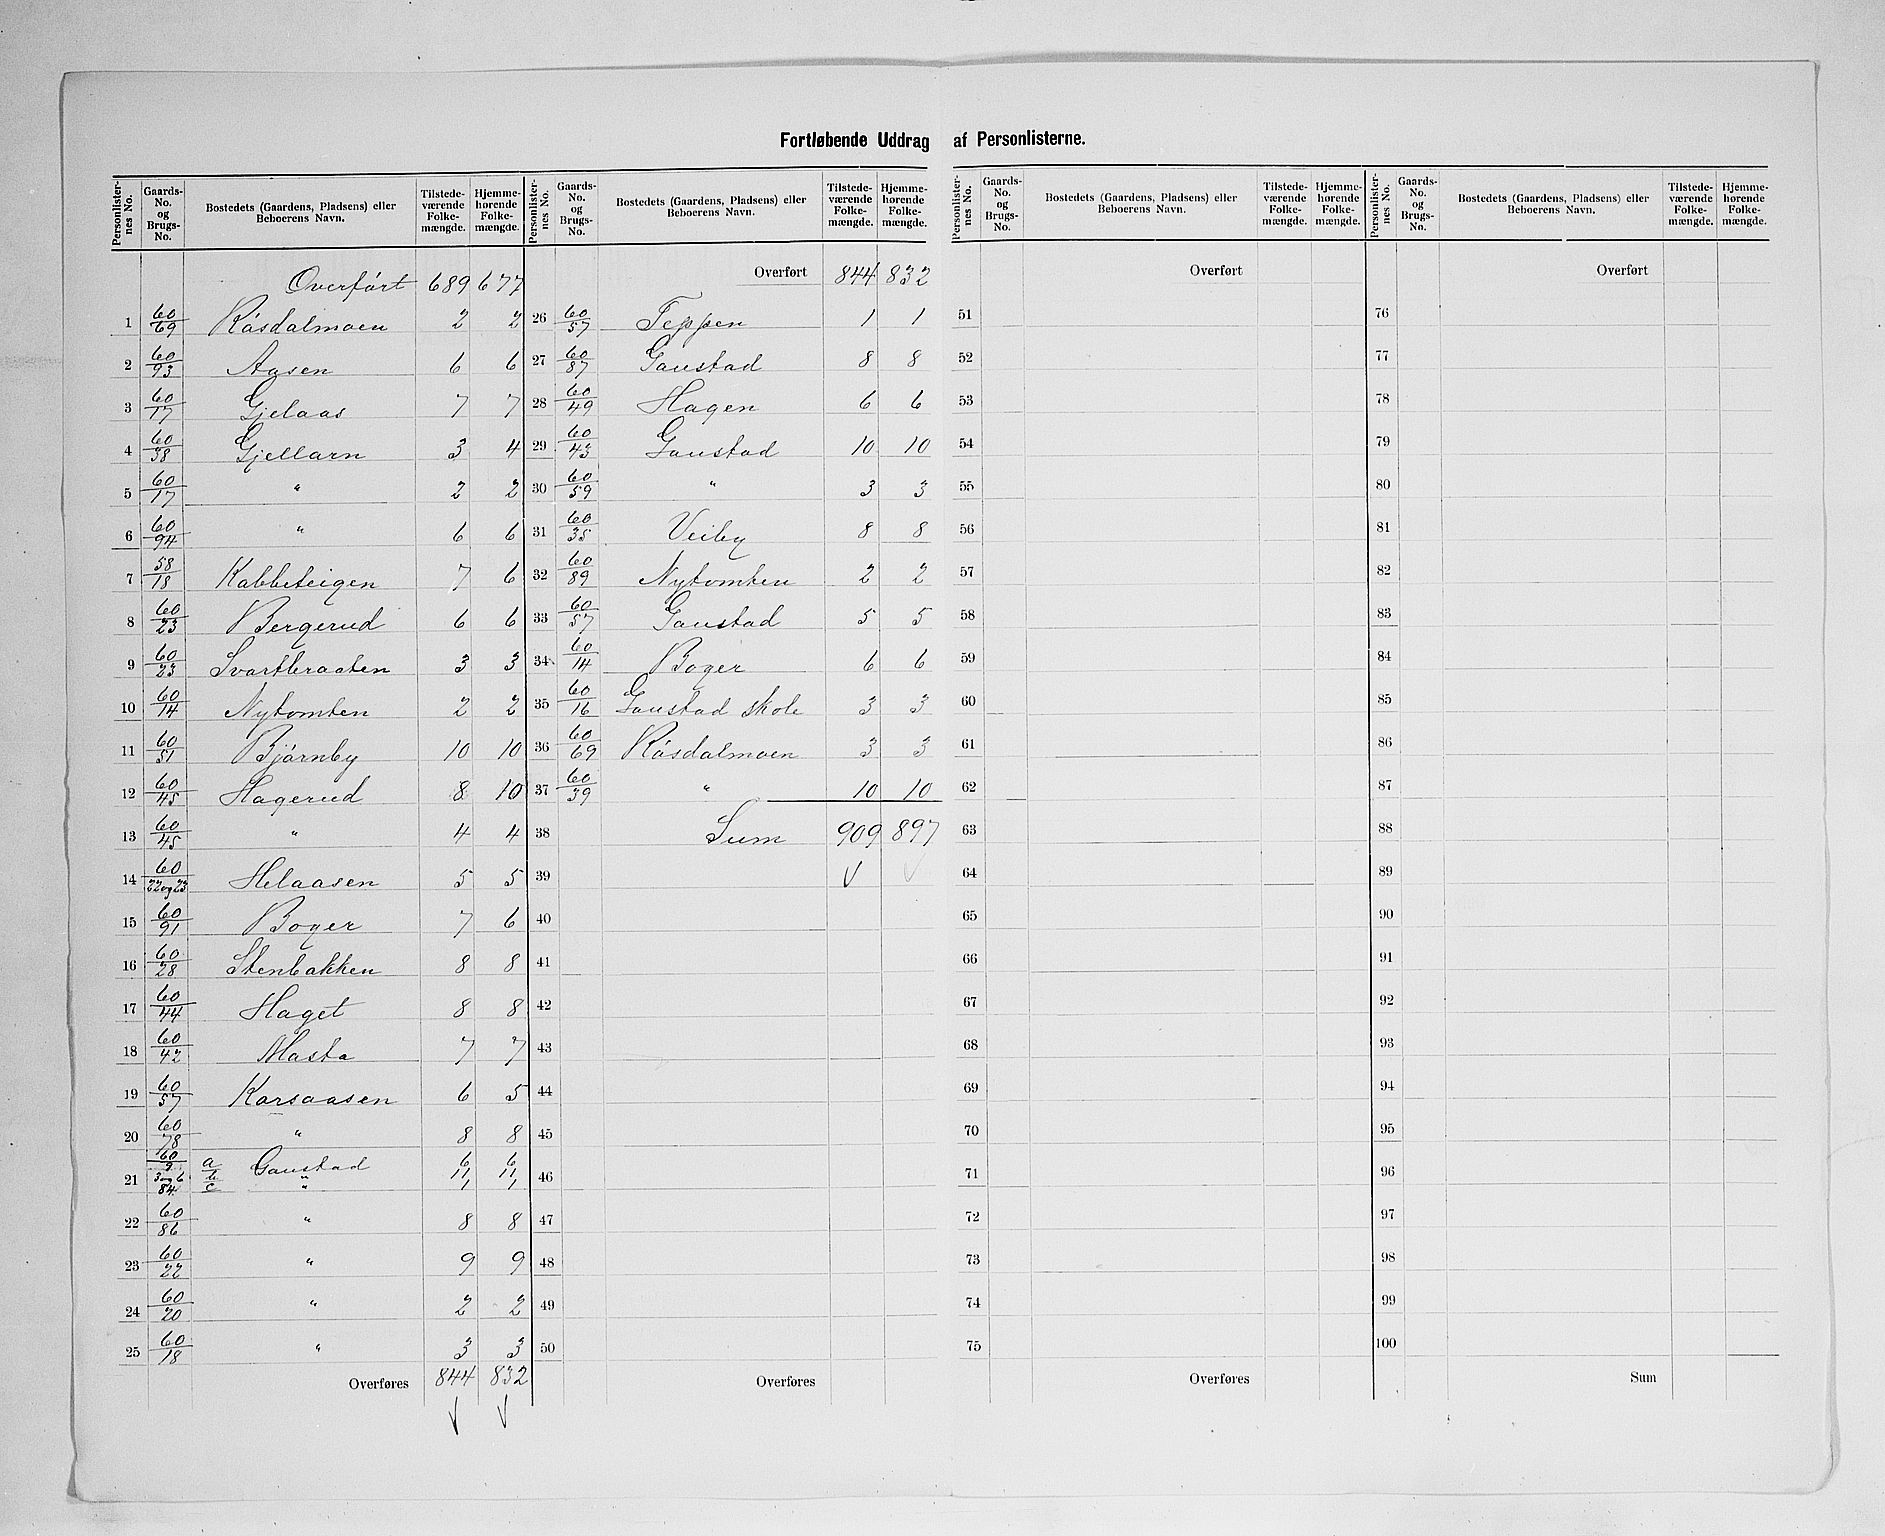 Fortløbende Uddrag af Personlisterne.
Personlisternes No. | Gaards-No. og Brugs-No. | Bostedets (Gaardens, Pladsens) eller Beboerens Navn. | Tilstedeværende Folkemængde. | Hjemmehørende Folkemængde.
Overført 689 677
1 60/69 Råsdalmoen 2 2
2 60/93 Aasen 6 6
3 60/17 Gjelaas 7 7
4 60/38 Gjellarn 3 4
5 60/17 " 2 2
6 60/94 " 6 6
7 58/18 Kabbeteigen 7 6
8 60/23 Bergerud 6 6
9 60/23 Svartbraaten 3 3
10 60/14 Nytomten 2 2
11 60/51 Bjørnby 10 10
12 60/45 Hagerud 8 10
13 60/45 " 4 4
14 60/22 og 23 Helaasen 5 5
15 60/91 Boger 7 6
16 60/28 Stenbakken 8 8
17 60/44 Haget 8 8
18 60/42 Masta 7 7
19 60/57 Korsaasen 6 5
20 60/78 " 8 8
21 60/9 a Gaustad 6 6
3 og 6 b " 11 11
84 c " 1 1
22 60/86 " 8 8
23 60/22 " 9 9
24 60/20 " 2 2
25 60/18 " 3 3
Overføres 844 832
Personlisternes No. | Gaards-No. og Brugs-No. | Bostedets (Gaardens, Pladsens) eller Beboerens Navn. | Tilstedeværende Folkemængde. | Hjemmehørende Folkemængde.
Overført 844 832
26 60/57 Teppen 1 1
27 60/87 Gaustad 8 8
28 60/49 Hagen 6 6
29 60/43 Gaustad 10 10
30 60/59 " 3 3
31 60/35 Veiby 8 8
32 60/89 Nytomten 2 2
33 60/57 Gaustad 5 5
34 60/14 Boger 6 6
35 60/16 Gaustad skole 3 3
36 60/69 Råsdalmoen 3 3
37 60/39 " 10 10
38 Sum 909 897
39
40
41
42
43
44
45
46
47
48
49
50
Overføres
Personlisternes No. | Gaards-No. og Brugs-No. | Bostedets (Gaardens, Pladsens) eller Beboerens Navn. | Tilstedeværende Folkemængde. | Hjemmehørende Folkemængde.
Overført
51
52
53
54
55
56
57
58
59
60
61
62
63
64
65
66
67
68
69
70
71
72
73
74
75
Overføres
Personlisternes No. | Gaards-No. og Brugs-No. | Bostedets (Gaardens, Pladsens) eller Beboerens Navn. | Tilstedeværende Folkemængde. | Hjemmehørende Folkemængde.
Overført
76
77
78
79
80
81
82
83
84
85
86
87
88
89
90
91
92
93
94
95
96
97
98
99
100
Sum